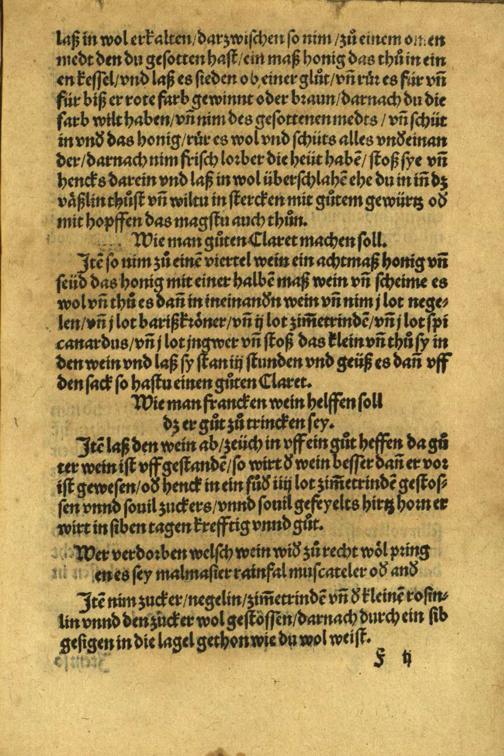 laß in wol erkalten/darzwischen so nim/zů einem omen
medt den du gesotten hast/ein maß honig das thů in ein
en kessel/vnd laß es sieden ob einer glůt/vñ růr es für vñ
für biß er rote farb gewinnt oder braun/darnach du die
farb wilt haben/vñ nim des gesottenen medts/vñ schüt
in vnd das honig/růr es wol vnd schüts alles vndeinan
der/darnach nim frisch lorber die heüt habẽ/stoß sye vñ
hencks darein vnd laß in wol überschlahẽ ehe du in iñ dz
väßlin thůst vñ wiltu in stercken mit gůtem gewürtz od
mit hopffen das magstu auch thůn.
Wie man gůten Claret machen soll.
Itẽ so nim zů einẽ viertel wein ein achtmaß honig vñ
seüd das honig mit einer halbẽ maß wein vñ scheime es
wol vñ thů es dañ in ineinandn wein vñ nim j lot nege-
len/vñ j lot barißkröner/vñ ij lot zim̃etrindẽ/vñ j lot spi
canardus/vñ j lot jngwer vñ stoß das klein vñ thů sy in
den wein vnd laß sy stan iij stunden vnd geüß es dañ vff
den sack so hastu einen gůten Claret.
Wie man francken wein helffen soll
dz er gůt zů trincken sey.
Itẽ laß den wein ab/zeüch in vff ein gůt heffen da gů
ter wein ist vff gestandẽ/so wirt d wein besser dañ er vor
ist gewesen/od henck in ein fůd iiij lot zim̃etrindẽ gestos-
sen vnnd souil zuckers/vnnd souil gefeyelts hirtz horn er
wirt in siben tagen krefftig vnnd gůt.
Wer verdorben welsch wein wid zů recht wöl pring
en es sey malmasier rainfal muscateler od and
Itẽ nim zucker/negelin/zim̃etrindẽ vñ d kleinẽ rosin-
lin vnnd den zucker wol gestössen/darnach durch ein sib
gesigen in die lagel gethon wie du wol weist.
F ij